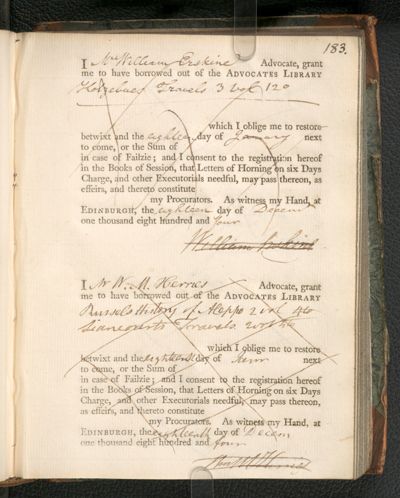 183.
I Mr William Erskine Advocate, grant
me to have borrowed out of the ADVOCATES LIBRARY
Kotzebues Travels 3 vol 12o
which I oblige me to restore
betwixt and the eighteen day of January next
to come, or the Sum of
in case of Failzie; and I consent to the registration hereof
in the Books of Session, that Letters of Horning on six Days
Charge, and other Executorials needful, may pass thereon, as
effeirs, and thereto constitute
my Procurators. As witness my Hand, at
EDINBURGH, the eighteen day of Decemr
one thousand eight hundred and four
William Erskine
I Mr W. M. Herries Advocate, grant
me to have borrowed out of the ADVOCATES LIBRARY
Russels History of Aleppo 2 vol 4to
Liancourts Travels 2 vol 4to
which I oblige me to restore
betwixt and the eighteenth day of Janr next
to come, or the Sum of
in case of Failzie; and I consent to the registration hereof
in the Books of Session, that Letters of Horning on six Days
Charge, and other Executorials needful, may pass thereon,
as effeirs, and thereto constitute
my Procurators. As witness my Hand, at
EDINBURGH, the eighteenth day of Decem
one thousand eight hundred and four
Herries